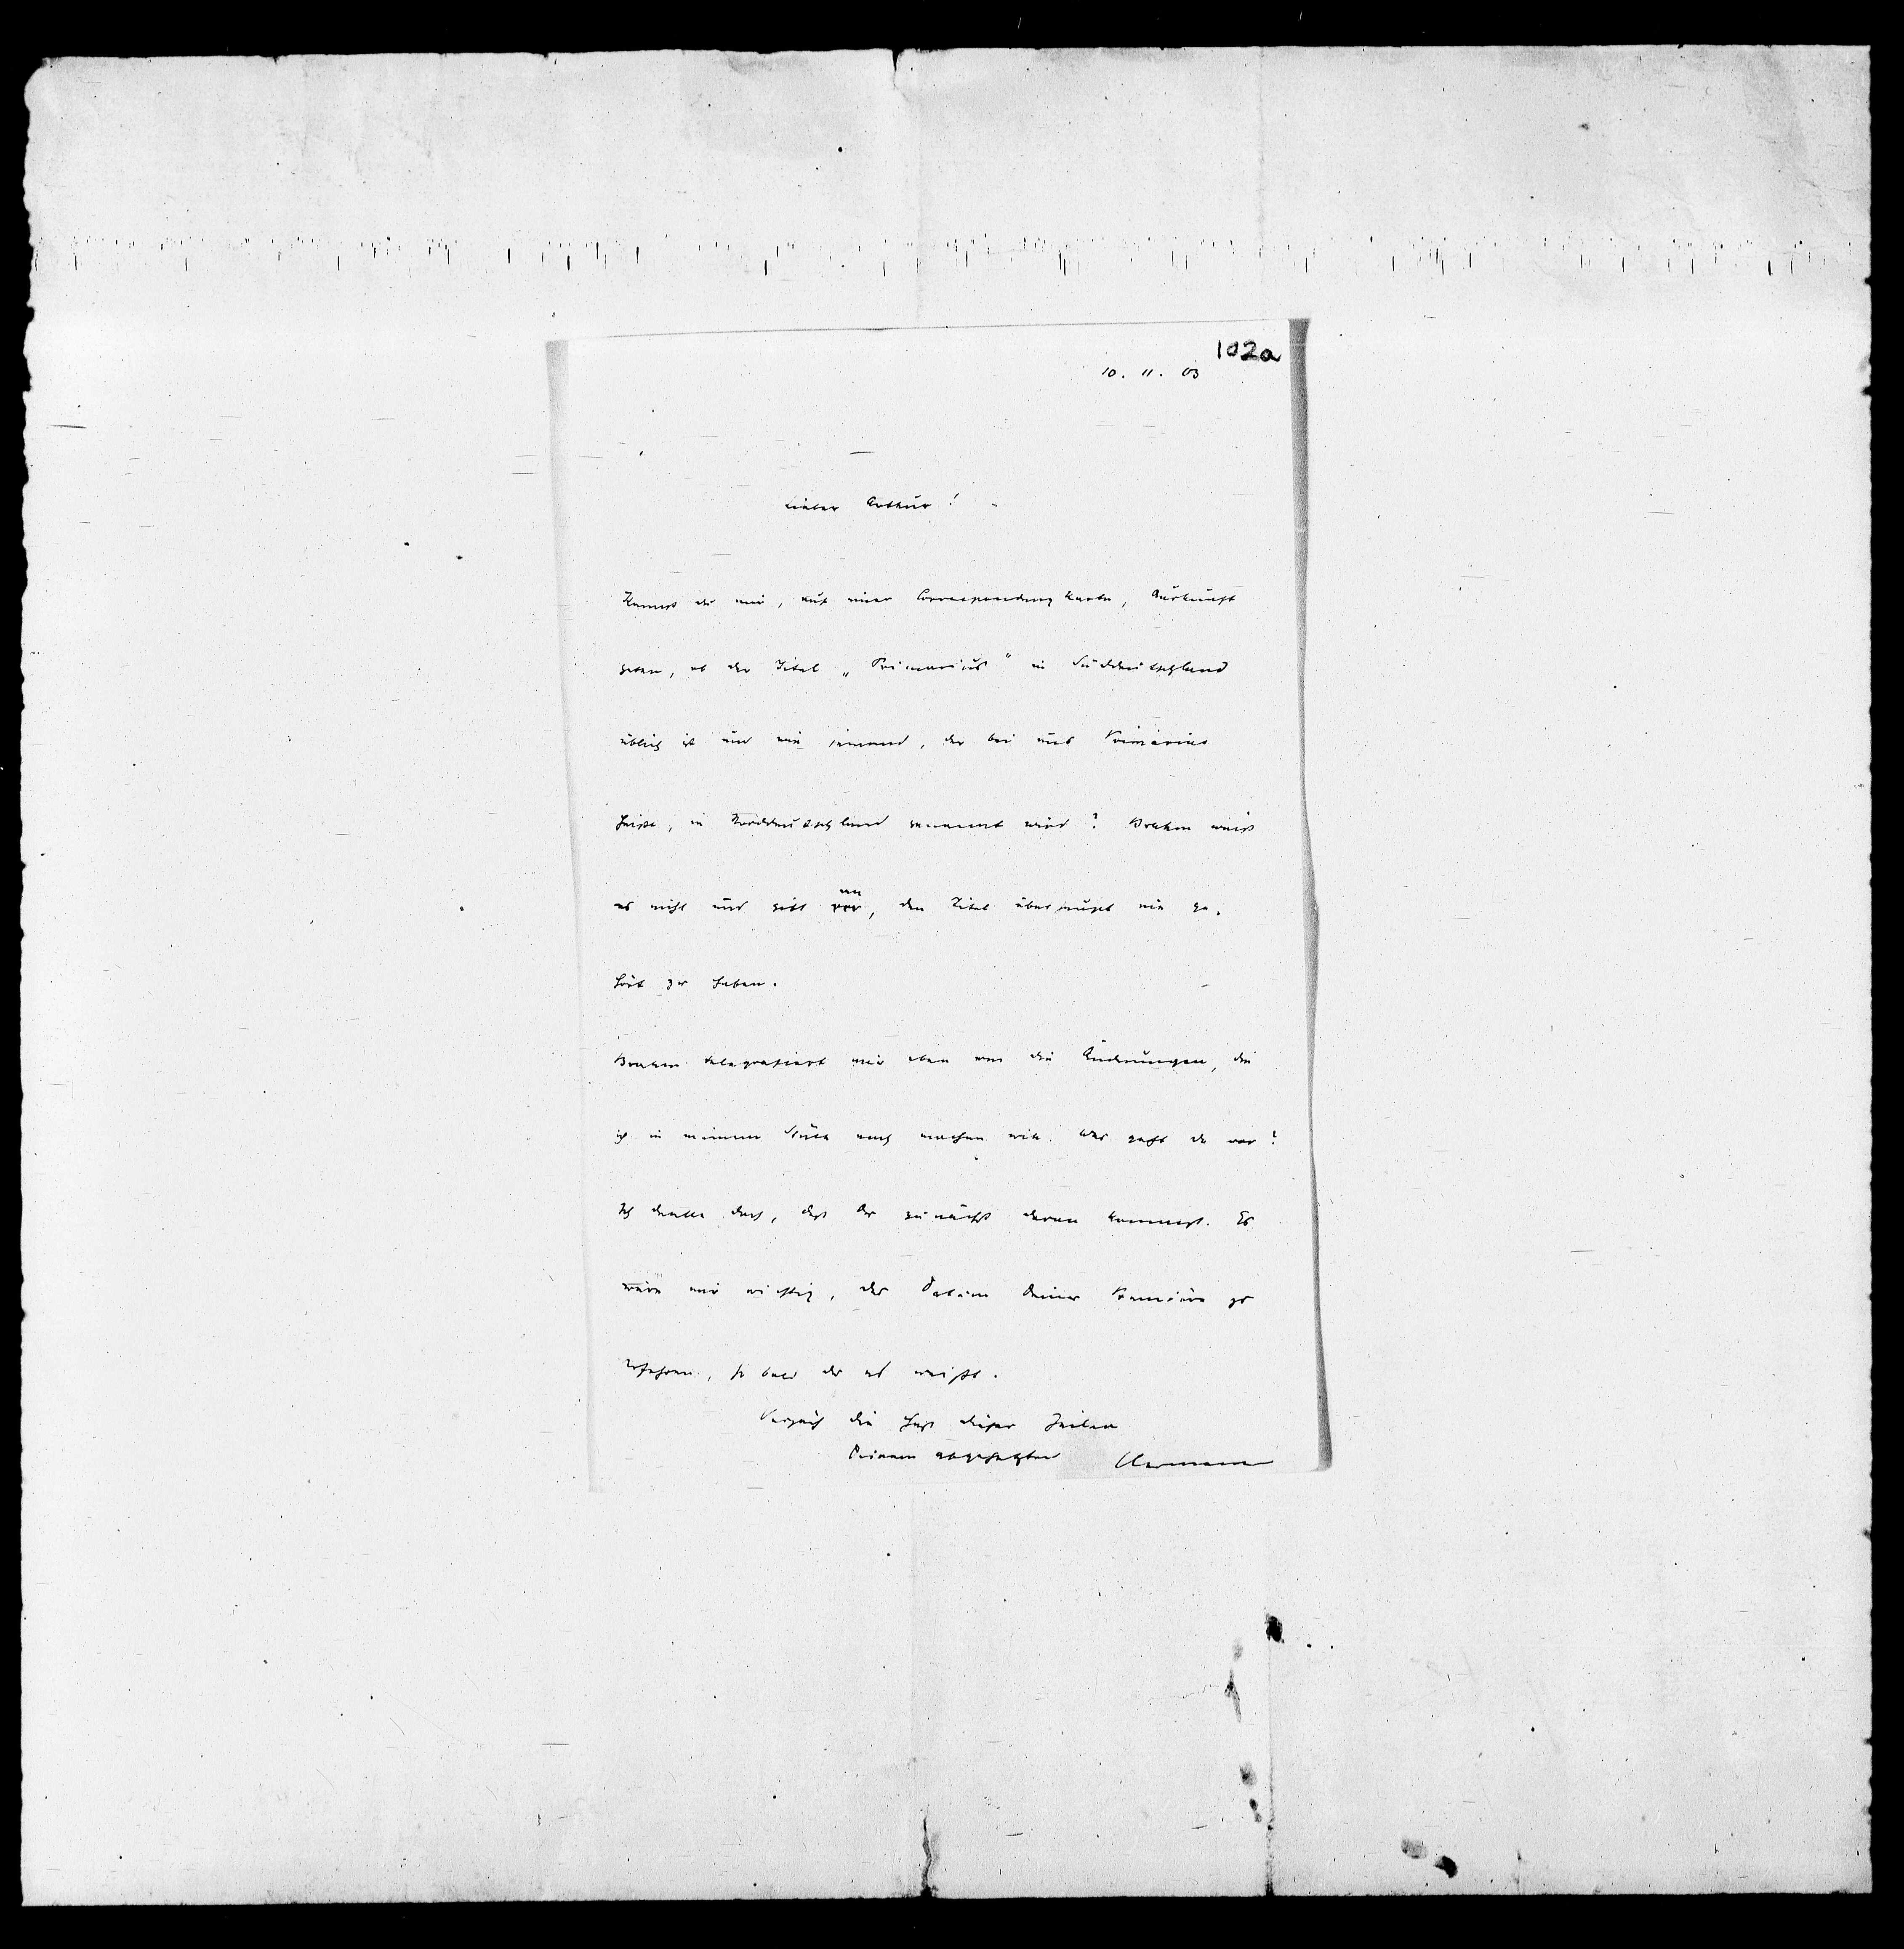 102a
10. 11. 03
Lieber Arthur!
Kannst du mir, auf einer Correspondenzkarte, Auskunft
geben, ob der Titel „Primarius" in Süddeutschland
üblich ist und wie jemand, der bei uns Primarius
heißt, in Norddeutschland genannt wird? Brahm weiß
es nicht und gibt an, den Titel überhaupt nie ge-
hört zu haben.
Brahm telegrafiert mir eben um die Änderungen, die
ich in meinem Stück noch machen will. Was geht da vor?
Ich denke doch, daß Du zunächst daran kommst. Es
wäre mir wichtig, das Datum Deiner Première zu
erfahren, so bald du es weißt.
Verzeih die Hast dieser Zeilen
Deinem abgehetzten Hermann